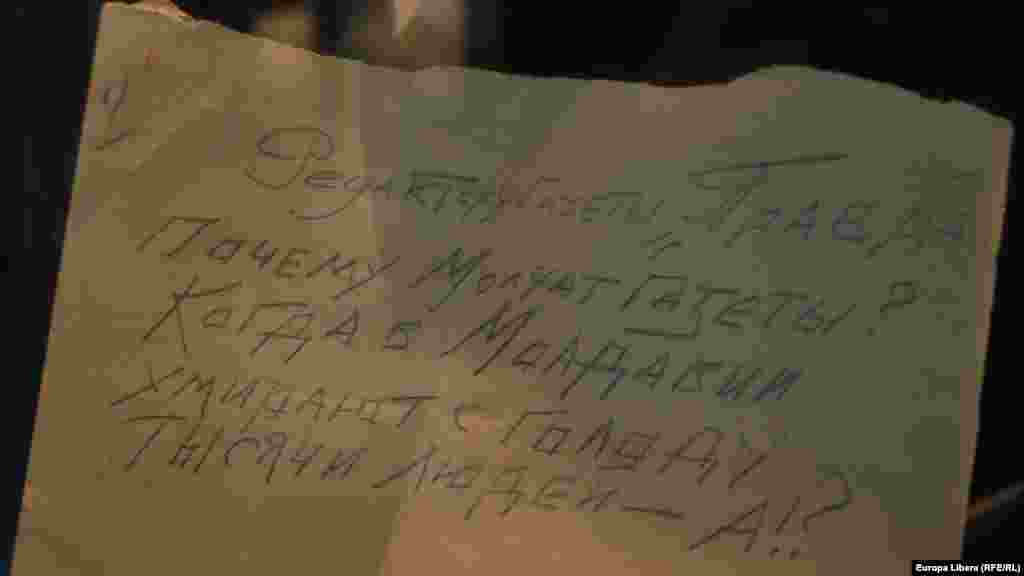 Редактеру газеты „Правда
Почему молчат газеты?
Когда в Молдавии
умирают с голоду
тысячи людей — А!?
Europa Libera (RFE/RL)